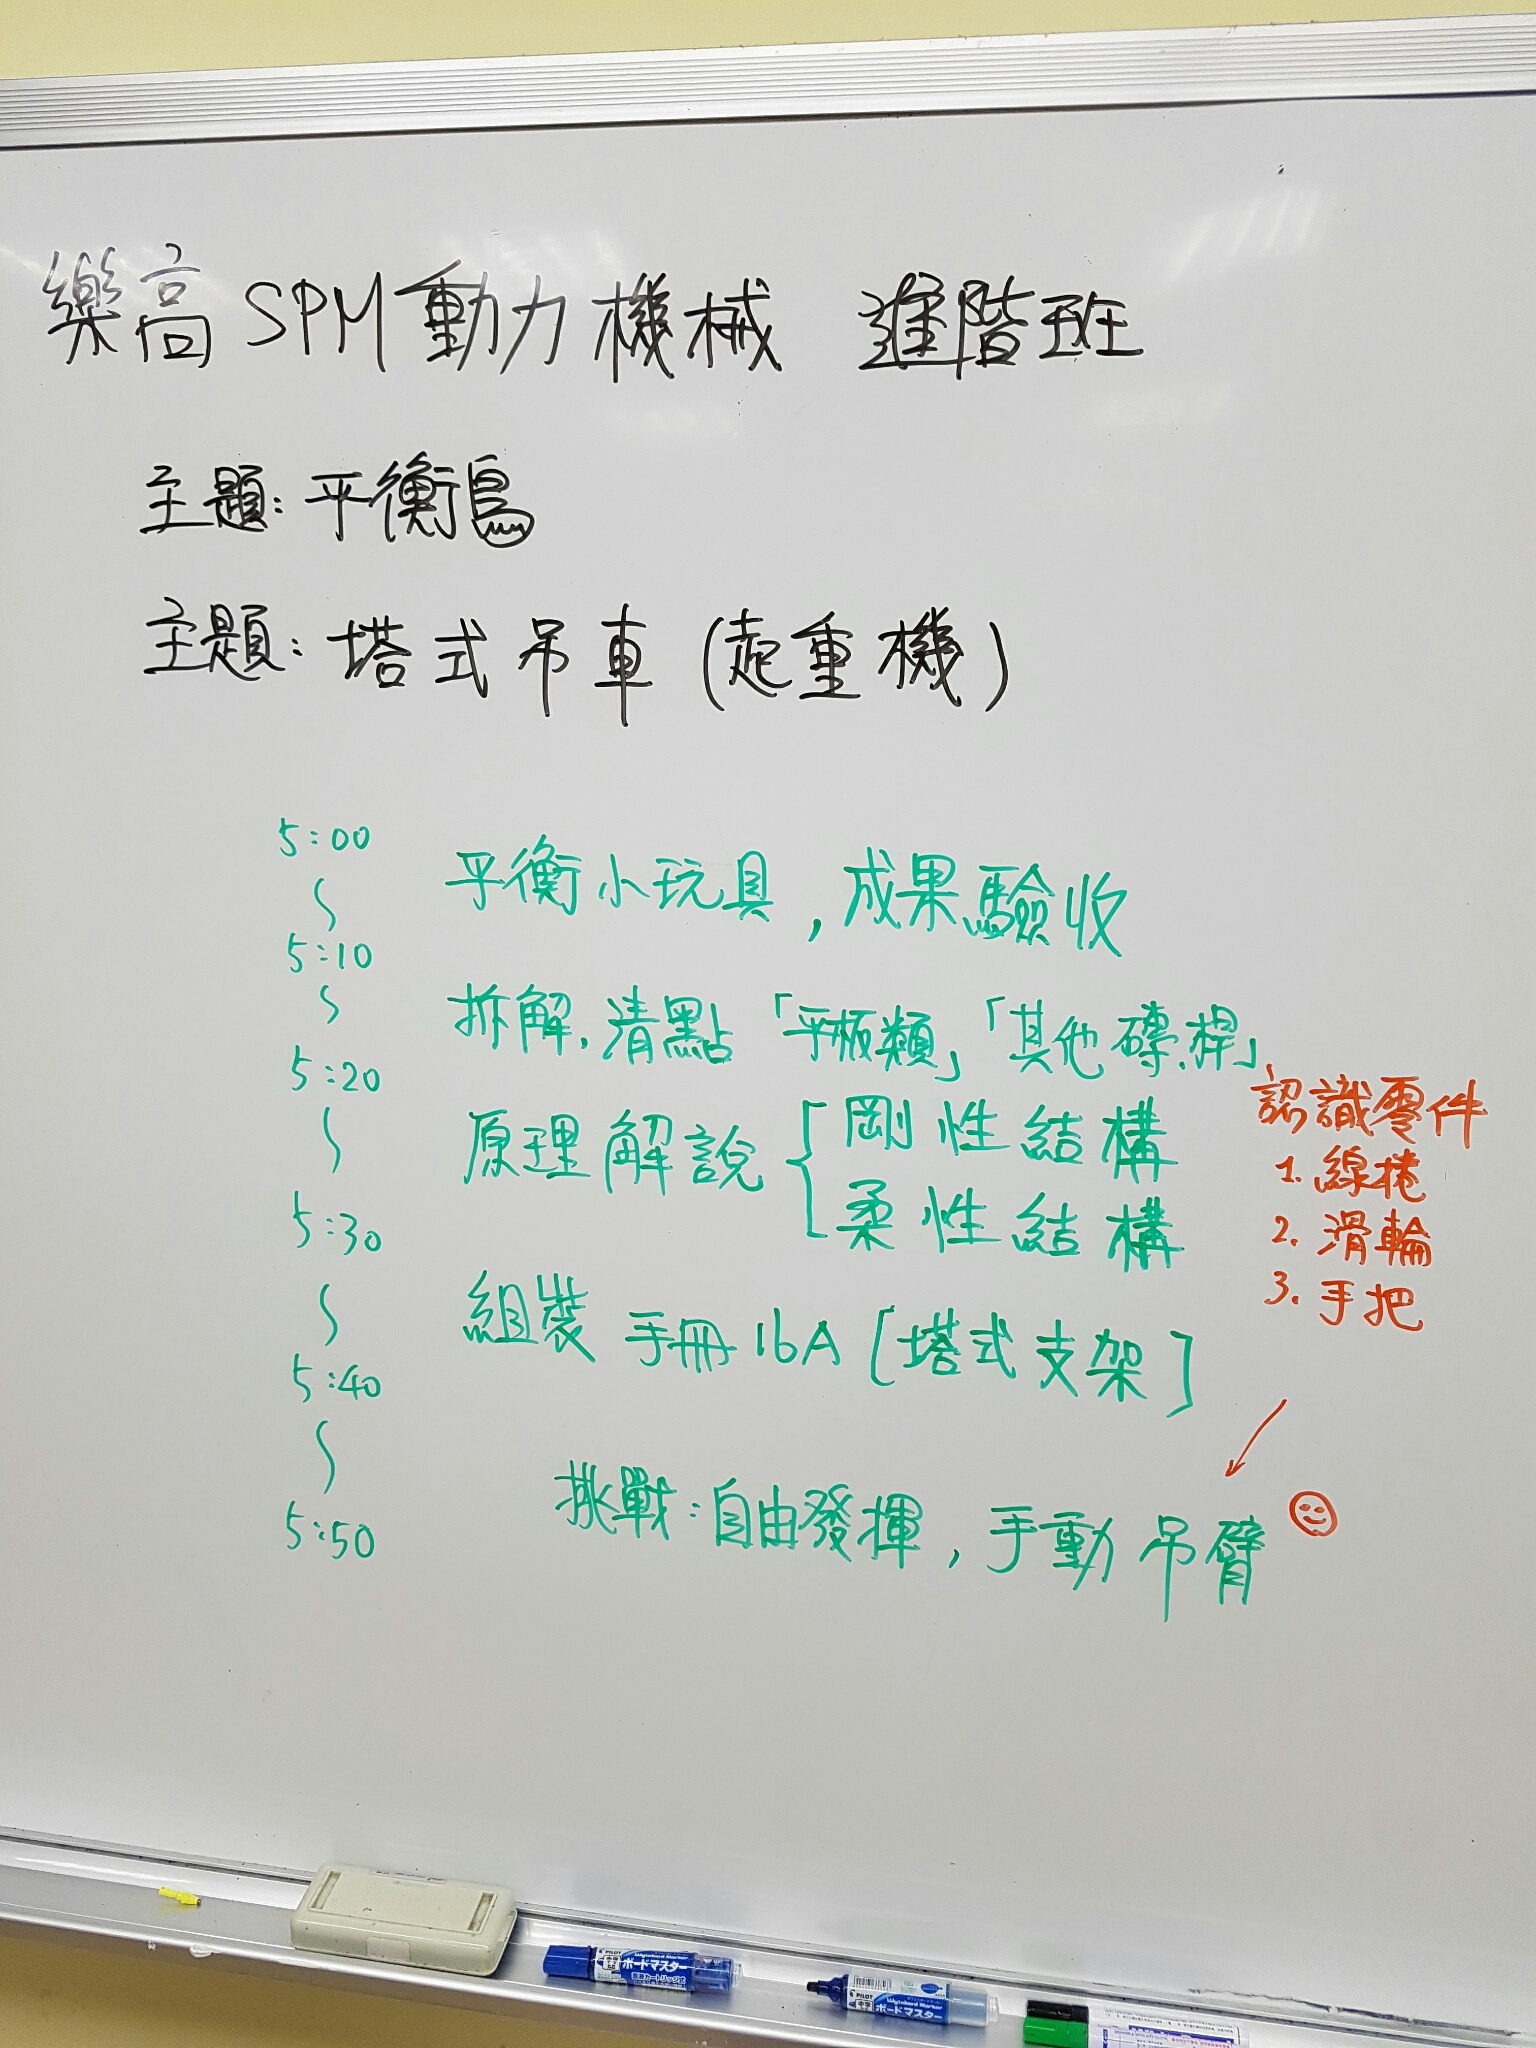 樂高SPM動力機械 進階班
主題:平衡鳥
主題:塔式吊車(起重機)
5:00
平衡小玩具,成果驗收
5:10
拆解,清點「平板類」「其他磚.桿」
5:20
原理解說
剛性結構
柔性結構
認識零件
1. 線捲
2. 滑輪
3. 手把
5:30
組裝 手冊16A [塔式支架]
5:40
挑戰:自由發揮,手動吊臂
5:50
PILOT
Wyteboard Marker
ボードマスター
PILOT
Wyteboard Marker
ボードマスター